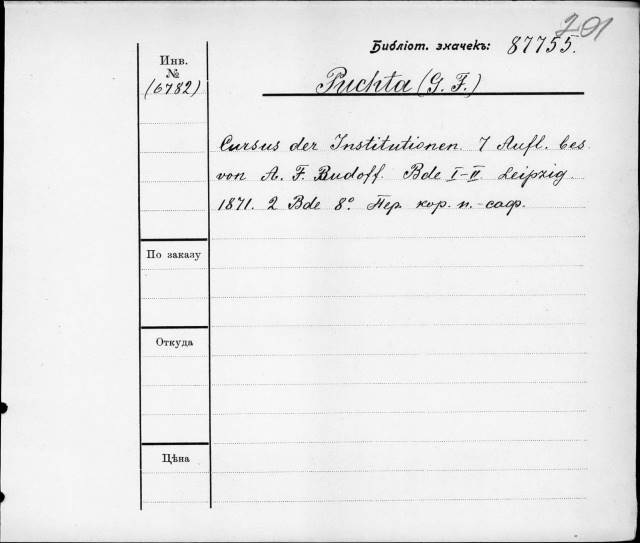 201
Библіот. значекъ: 87755.
Инв.
№
(6782)
Puchta (G. F.)
Cursus der Institutionen 7 Aufl. bes.
von A. F. Rudoff. Bde I–II. Leipzig.
1871. 2 Bde 8°. Пер. кор. п.-саф.
По заказу
Откуда
Цѣна